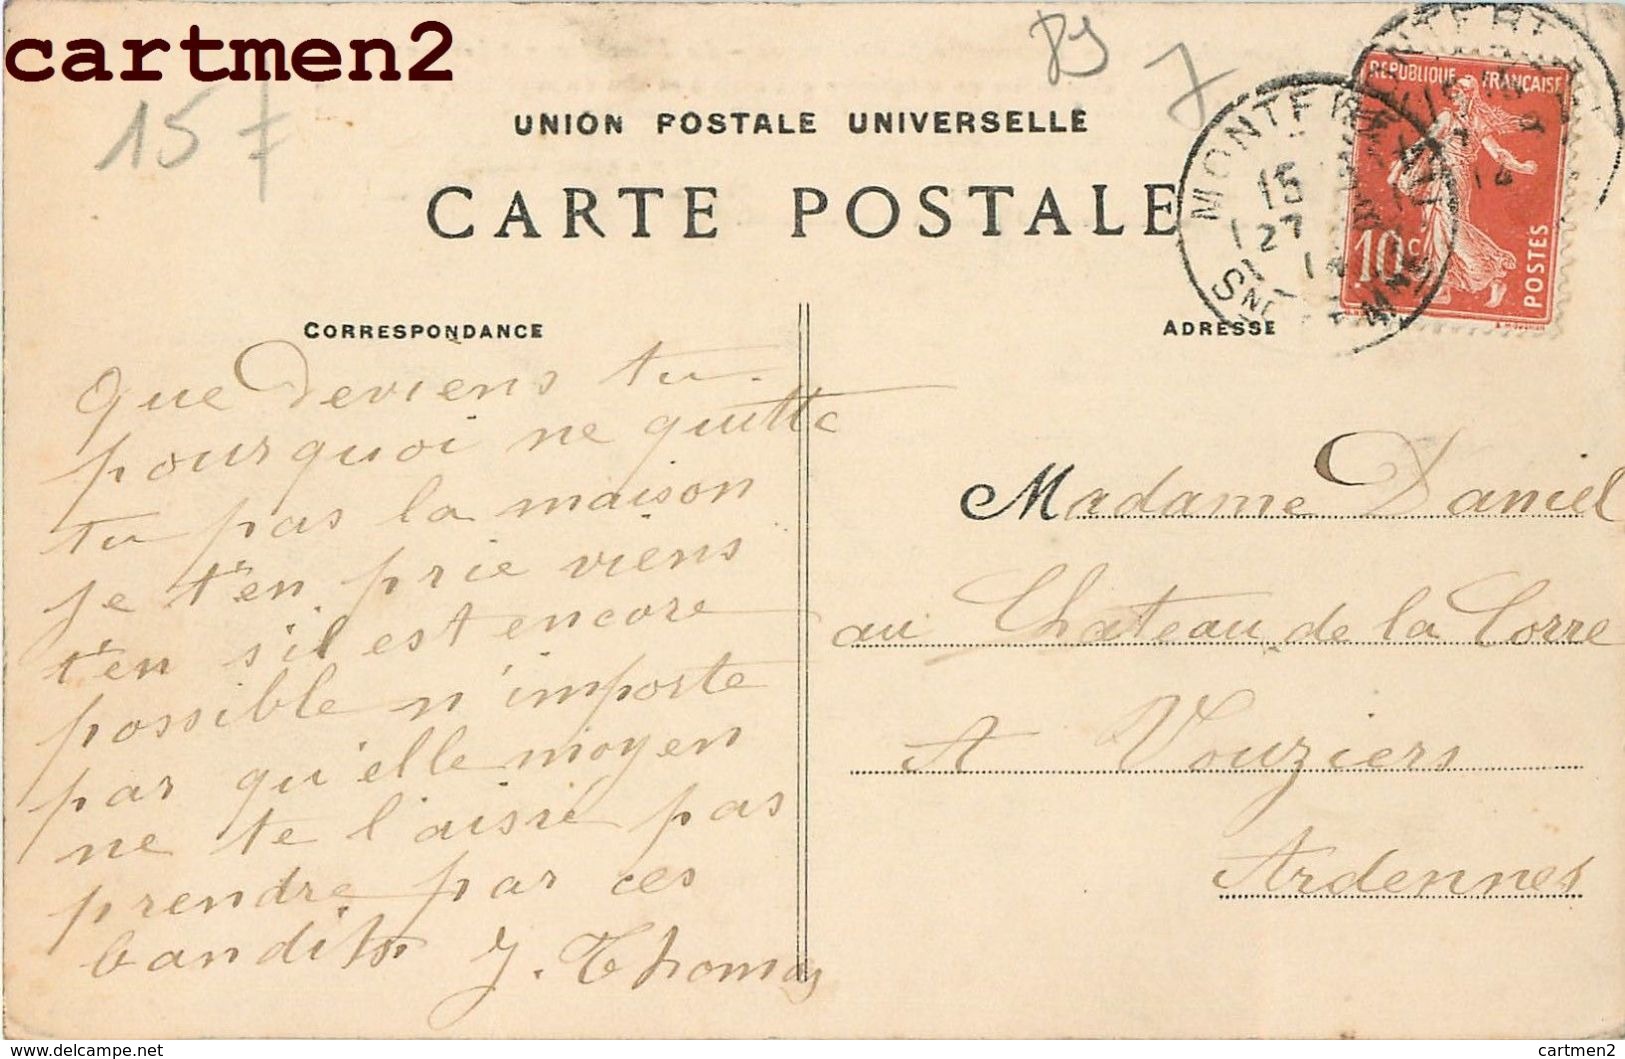 cartmen2
15 F
UNION POSTALE UNIVERSELLE
CARTE POSTALE
REPUBLIQUE FRANÇAISE
10 c
POSTES
15
27
CORRESPONDANCE
ADRESSE
Que Deviens tu
pourquoi ne quitte
tu pas la maison
je t'en prie viens
t'en s'il est encore
possible n'importe
par qu'elle moyen
ne te l'aisse pas
prendre par ces
bandits J. Thomas
Madame Daniel
au Chateau de la Corre
A Vouziers
Ardennes
www.delcampe.net
cartmen2